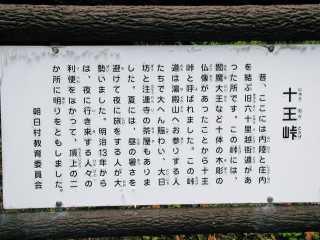 十王峠
昔、ここには内陸と庄内
を結ぶ旧六十里越街道があ
った所です。この峠には、
閻魔大王など十体の木彫の
仏像があったことから十王
峠と呼ばれました。この峠
道は湯殿山へお参りする人
たちで大へん賑わい、大日
坊と注連寺の茶屋もありま
した。夏には、昼の暑さを
避けて夜に旅をする人が大
勢いました。明治13年から
は、夜に行き来する人々の
利便をはかって、頂上の二
か所に明りをともしました。
朝日村教育委員会